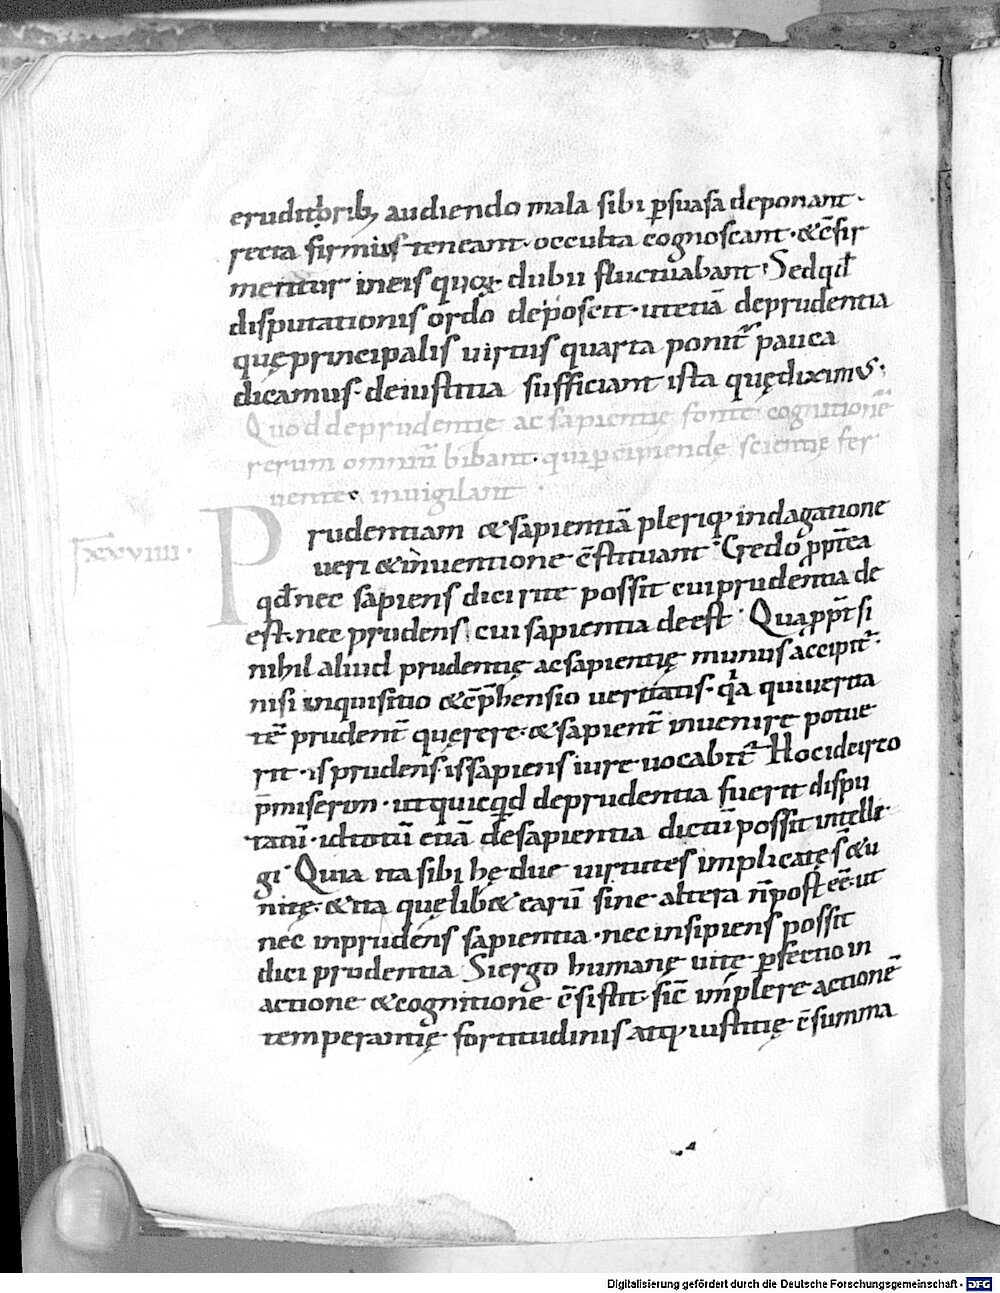 eruditꝍrib; audiendo mala sibi ꝑsuasa deponant·
recta firmius teneant· occulta cognoscant· & c̄fir
mentur in eis quoq· dubii fluctuabant· Sed qđ
disputationis ordo deposcit· ut etiā de prudentia
quę principalis uirtus quarta ponit̄ pauca
dicamus· de iustitia sufficiant ista quę diximus·
Quod de prudentię ac sapientię fonte cognitionē
rerum omniū bibant· qui ꝑcipiendę scientię fer
uentes inuigilant·
xxviiii·
Prudentiam & sapientiā pleriq; indagatione
ueri & inuentione c̄stituant· Credo ꝓpt̄ea
qđ nec sapiens dici rite possit cui prudentia de
est· nec prudens cui sapientia deest· Quaꝓpt̄ si
nihil aliud prudentię ac sapientię munus accipit̄·
nisi inquisitio & c̄p̄hensio ueritatis· q̇a qui uerita
tē prudent̄ querere· & sapient̄ inuenire potue
rit· is prudens is sapiens iure uocabit̄· Hoc idcirco
p̄miserim· ut quicqđ de prudentia fuerit dispu
tatū· id totū etiā de sapientia dictū possit intelle
gi· Quia ita sibi hę due uirtutes implicatę s̄ & u
nitę· & ita quęlib& earū sine altera n̄ post ēē· ut
nec inprudens sapientia· nec insipiens possit
dici prudentia Si ergo humanę uitę ꝑfectio in
actione & cognitione c̄sistit· sic̄ implere actionē
temperantię fortitudinis atq; iustitię c̄summa
Digitalisierung gefördert durch die Deutsche Forschungsgemeinschaft - DFG